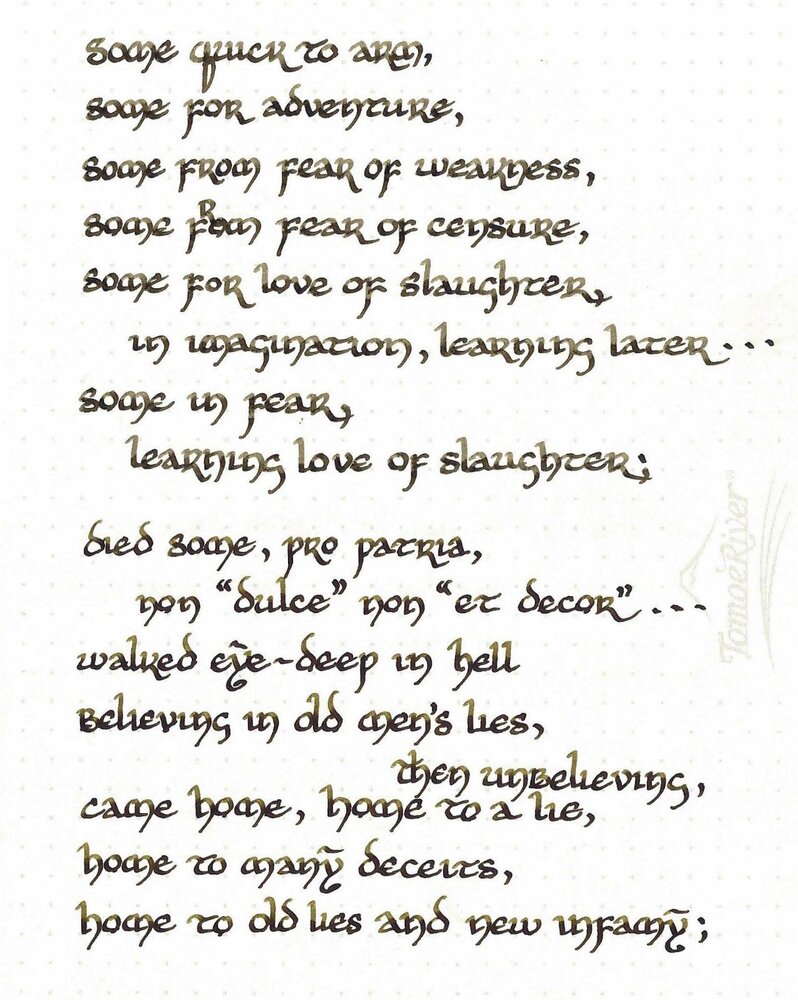 Some quick to arm,
some for adventure,
some from fear of weakness,
some from fear of censure,
some for love of slaughter,
in imagination, learning later...
some in fear,
learning love of slaughter;
died some, pro patria,
non “dulce” non “et decor”...
walked eye-deep in hell
believing in old men's lies,
then unbelieving,
came home, home to a lie,
home to many deceits,
home to old lies and new infamy;
TomoeRiver